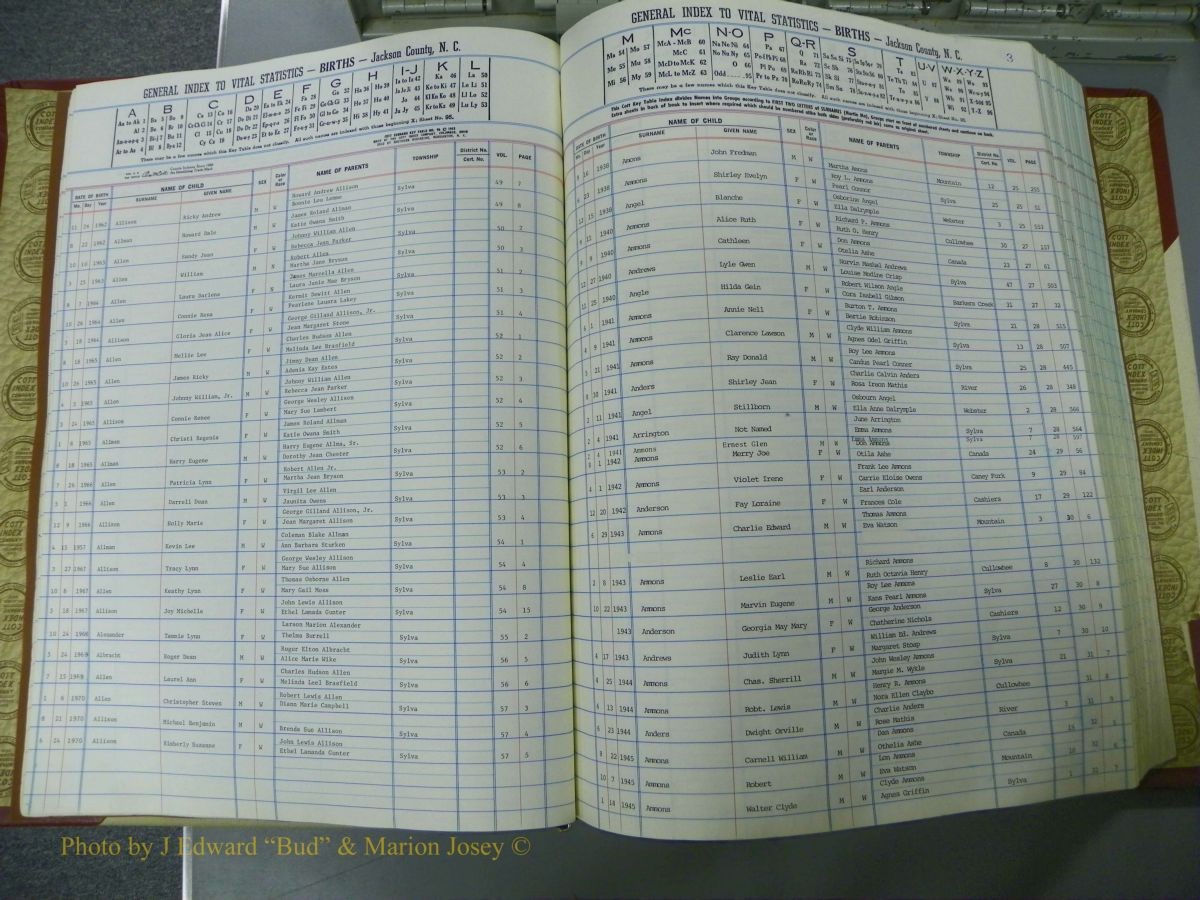 GENERAL INDEX TO VITAL STATISTICS — BIRTHS — Jackson County, N. C.
A B C D E F G H I-J K L
There may be a few names which this Key Table does not classify. All such names are indexed with those beginning X; Sheet No. 95.
DATE OF BIRTH NAME OF CHILD SEX Color or Race NAME OF PARENTS TOWNSHIP District No. VOL. PAGE
Mo. Day Year SURNAME GIVEN NAME Cert. No.
Howard Andrew Allison Sylva 49 7
11 24 1962 Allison Ricky Andrew M W Bonnie Lou Lemme
James Roland Allman Sylva 49 8
8 22 1962 Allman Howard Dale M W Katie Owana Smith
Johnny William Allen Sylva 50 2
10 16 1963 Allen Sandy Jean F W Rebecca Jean Parker
Robert Allen Sylva 50 3
3 25 1963 Allen William M N Martha Jane Bryson
James Marcella Allen Sylva 51 2
8 7 1964 Allen Laura Darlene F N Laura Janie Mae Bryson
Kermit Dewitt Allen Sylva 51 3
10 26 1964 Allen Connie Rosa F W Pearlene Lauara Lakey
George Gilland Allison, Jr. Sylva 51 4
3 18 1964 Allison Gloria Jean Alice F W Jean Margaret Stone
Charles Hudson Allen Sylva 52 1
8 18 1965 Allen Mellie Lee F W Melinda Lee Brasfield
Jimmy Dean Allen Sylva 52 2
10 26 1965 Allen James Ricky M W Adonia Kay Estes
Johnny William Allen Sylva 52 3
4 3 1965 Allen Johnny William, Jr. M W Rebecca Jean Parker
George Wesley Allison Sylva 52 4
3 24 1965 Allison Connie Renee F W Mary Sue Lambert
James Roland Allman Sylva 52 5
1 6 1965 Allman Christi Regenia F W Katie Owana Smith
Harry Eugene Allma, Sr. Sylva 52 6
8 18 1965 Allman Harry Eugene M W Dorothy Jean Chester
Robert Allen Jr. Sylva 53 2
7 26 1966 Allen Patricia Lynn F W Martha Jean Bryson
Virgil Lee Allen Sylva 53 3
3 2 1966 Allen Darrell Dean M W Jaunita Owens
George Gilland Allison, Jr. Sylva 53 4
12 9 1966 Allison Holly Marie F W Jean Margaret Allison
Coleman Blake Allman Sylva 54 1
4 15 1957 Allman Kevin Lee M W Ann Barbara Sturken
George Wesley Allison Sylva 54 4
3 27 1967 Allison Tracy Lynn F W Mary Sue Allison
Thomas Osborne Allen Sylva 54 8
10 6 1967 Allen Keathy Lynn F W Mary Gail Moss
John Lewis Allison Sylva 54 15
3 18 1967 Allison Joy Michelle F W Ethel Lamada Gunter
Larson Marion Alexander
10 24 1968 Alexander Tammie Lynn F W Thelma Burrell Sylva 55 2
Roger Elton Albracht
3 24 1969 Albracht Roger Dean M W Alice Marie Wike Sylva 56 5
Charles Hudson Allen
7 15 1969 Allen Laurel Ann F W Melinda Leel Brasfield Sylva 56 6
Robert Lewis Allen
1 6 1970 Allen Christopher Steven M W Diann Marie Campbell Sylva 57 3
8 21 1970 Allison Michael Benjamin M W Brenda Sue Allison Sylva 57 4
John Lewis Allison
6 24 1970 Allison Kimberly Suzanne F W Ethel Lamanda Gunter Sylva 57 5
GENERAL INDEX TO VITAL STATISTICS — BIRTHS — Jackson County, N. C. 3
M Mc N-O P Q-R S T U-V W-X-Y-Z
There may be a few names which this Key Table does not classify. All such names are indexed with those beginning X; Sheet No. 95.
DATE OF BIRTH NAME OF CHILD SEX Color or Race NAME OF PARENTS TOWNSHIP District No. VOL. PAGE
Mo. Day Year SURNAME GIVEN NAME Cert. No.
8 16 1938 Amons John Fredman M W Martha Amons
Roy L. Ammons Mountain 12 25 255
4 23 1938 Ammons Shirley Evelyn F W Pearl Connor
Osborine Angel Sylva 25 25 51
12 15 1938 Angel Blanche F W Ella Dalrymple
Richard P. Ammons Webster 3 25 553
9 13 1940 Ammons Alice Ruth F W Ruth O. Henry
Don Ammons Cullowhee 30 27 137
9 9 1940 Ammons Cathleen F W Otelia Ashe
Norvin Mashel Andrews Canada 23 27 61
12 27 1940 Andrews Lyle Gwen M W Louise Modine Crisp
Robert Wilson Angle Sylva 47 27 503
11 25 1940 Angle Hilda Gein F W Cora Isabell Gibson
Burton T. Ammons Barkers Creek 31 27 32
6 1 1941 Ammons Annie Nell F W Bertie Robinson
Clyde William Ammons Sylva 21 28 515
4 9 1941 Ammons Clarence Lawson M W Agnes Odel Griffin
Roy Lee Ammons Sylva 13 28 507
3 21 1941 Ammons Ray Donald M W Candus Pearl Conner
Charlie Calvin Anders Sylva 25 28 445
8 30 1941 Anders Shirley Jean F W Rosa Ireon Mathis
Osbourn Angel River 26 28 348
2 11 1941 Angel Stillborn M W Ella Anne Dalrymple
June Arrington Webster 2 28 566
2 4 1941 Arrington Not Named Emma Ammons Sylva 7 28 564
2 4 1941 Ammons Ernest Glen M W Sylva 28 597
8 1 1942 Ammons Merry Joe F W Don Ammons
Otila Ashe Canada 24 29 56
Frank Lee Ammons
4 1 1942 Ammons Violet Irene F W Carrie Eloise Owens Caney Fork 9 29 94
Earl Anderson
12 20 1942 Anderson Fay Loraine F W Frances Cole Cashiers 17 29 122
Thomas Ammons
6 29 1943 Ammons Charlie Edward M W Eva Watson Mountain 3 30 6
Richard Ammons
2 8 1943 Ammons Leslie Earl M W Ruth Octavia Henry Cullowhee 8 30 132
Roy Lee Ammons
10 22 1943 Ammons Marvin Eugene M W Kans Pearl Ammons Sylva 27 30 8
George Anderson
1943 Anderson Georgia May Mary F W Chatherine Nichols Cashiers 12 30 9
William Ed. Andrews
4 17 1943 Andrews Judith Lynn F W Margaret Stoap Sylva 7 30 10
John Wesley Ammons
4 25 1944 Ammons Chas. Sherrill M W Margie M. Wykle Sylva 21 31 7
Henry R. Ammons
6 13 1944 Ammons Robt. Lewis M W Nora Ellen Claybo Cullowhee 31 8
Charlie Anders
6 23 1944 Anders Dwight Orville M W Rose Mathis River 3 31 9
Dan Ammons
8 22 1945 Ammons Carnell William M W Othelia Ashe Canada 15 32
Lon Ammons
10 7 1945 Ammons Robert M W Eva Watson Mountain 10 32 6
Clyde Ammons
1 18 1945 Ammons Walter Clyde M W Agnes Griffin Sylva 1 32 7
Photo by J Edward “Bud” & Marion Josey ©